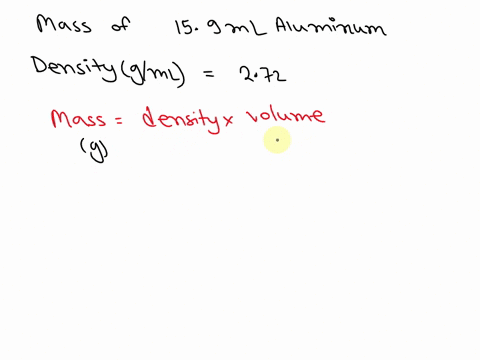 Mass of 15.9mL Aluminum
Density(g/mL) = 2.72
Mass = density x volume
(g)